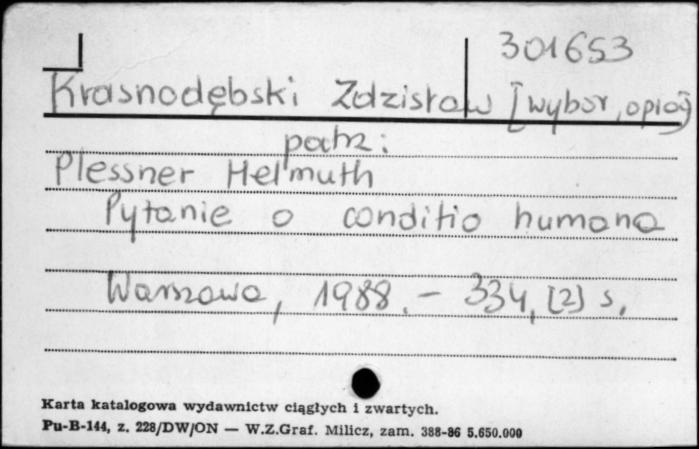 301653
Krasnodębski Zdzisław [wybór, opra]
patrz:
Plessner Helmuth
Pytanie o conditio humana
Warszawa, 1988. – 334, [2] s.
Karta katalogowa wydawnictw ciągłych i zwartych.
Pu-B-144, z. 228/DW/ON — W.Z.Graf. Milicz, zam. 388-86 5.650.000